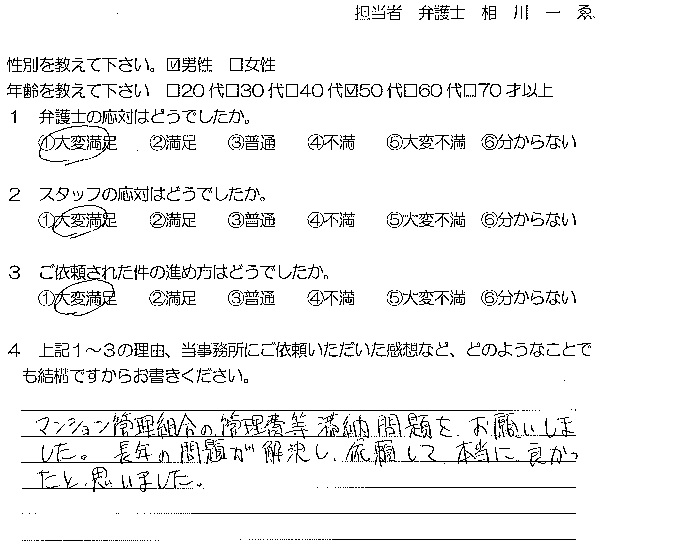 担当者　弁護士　相　川　一　ゑ
性別を教えて下さい。☑男性　□女性
年齢を教えて下さい　□20代□30代□40代☑50代□60代□70才以上
1　弁護士の応対はどうでしたか。
①大変満足　②満足　③普通　④不満　⑤大変不満　⑥分からない
2　スタッフの応対はどうでしたか。
①大変満足　②満足　③普通　④不満　⑤大変不満　⑥分からない
3　ご依頼された件の進め方はどうでしたか。
①大変満足　②満足　③普通　④不満　⑤大変不満　⑥分からない
4　上記1～3の理由、当事務所にご依頼いただいた感想など、どのようなことで
も結構ですからお書きください。
マンション管理組合の管理費等滞納問題を、お願いしま
した。長年の問題が解決し、依頼して本当に良かっ
たと思いました。